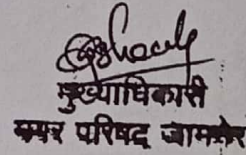 मुख्याधिकारी
नगर परिषद जामखेड